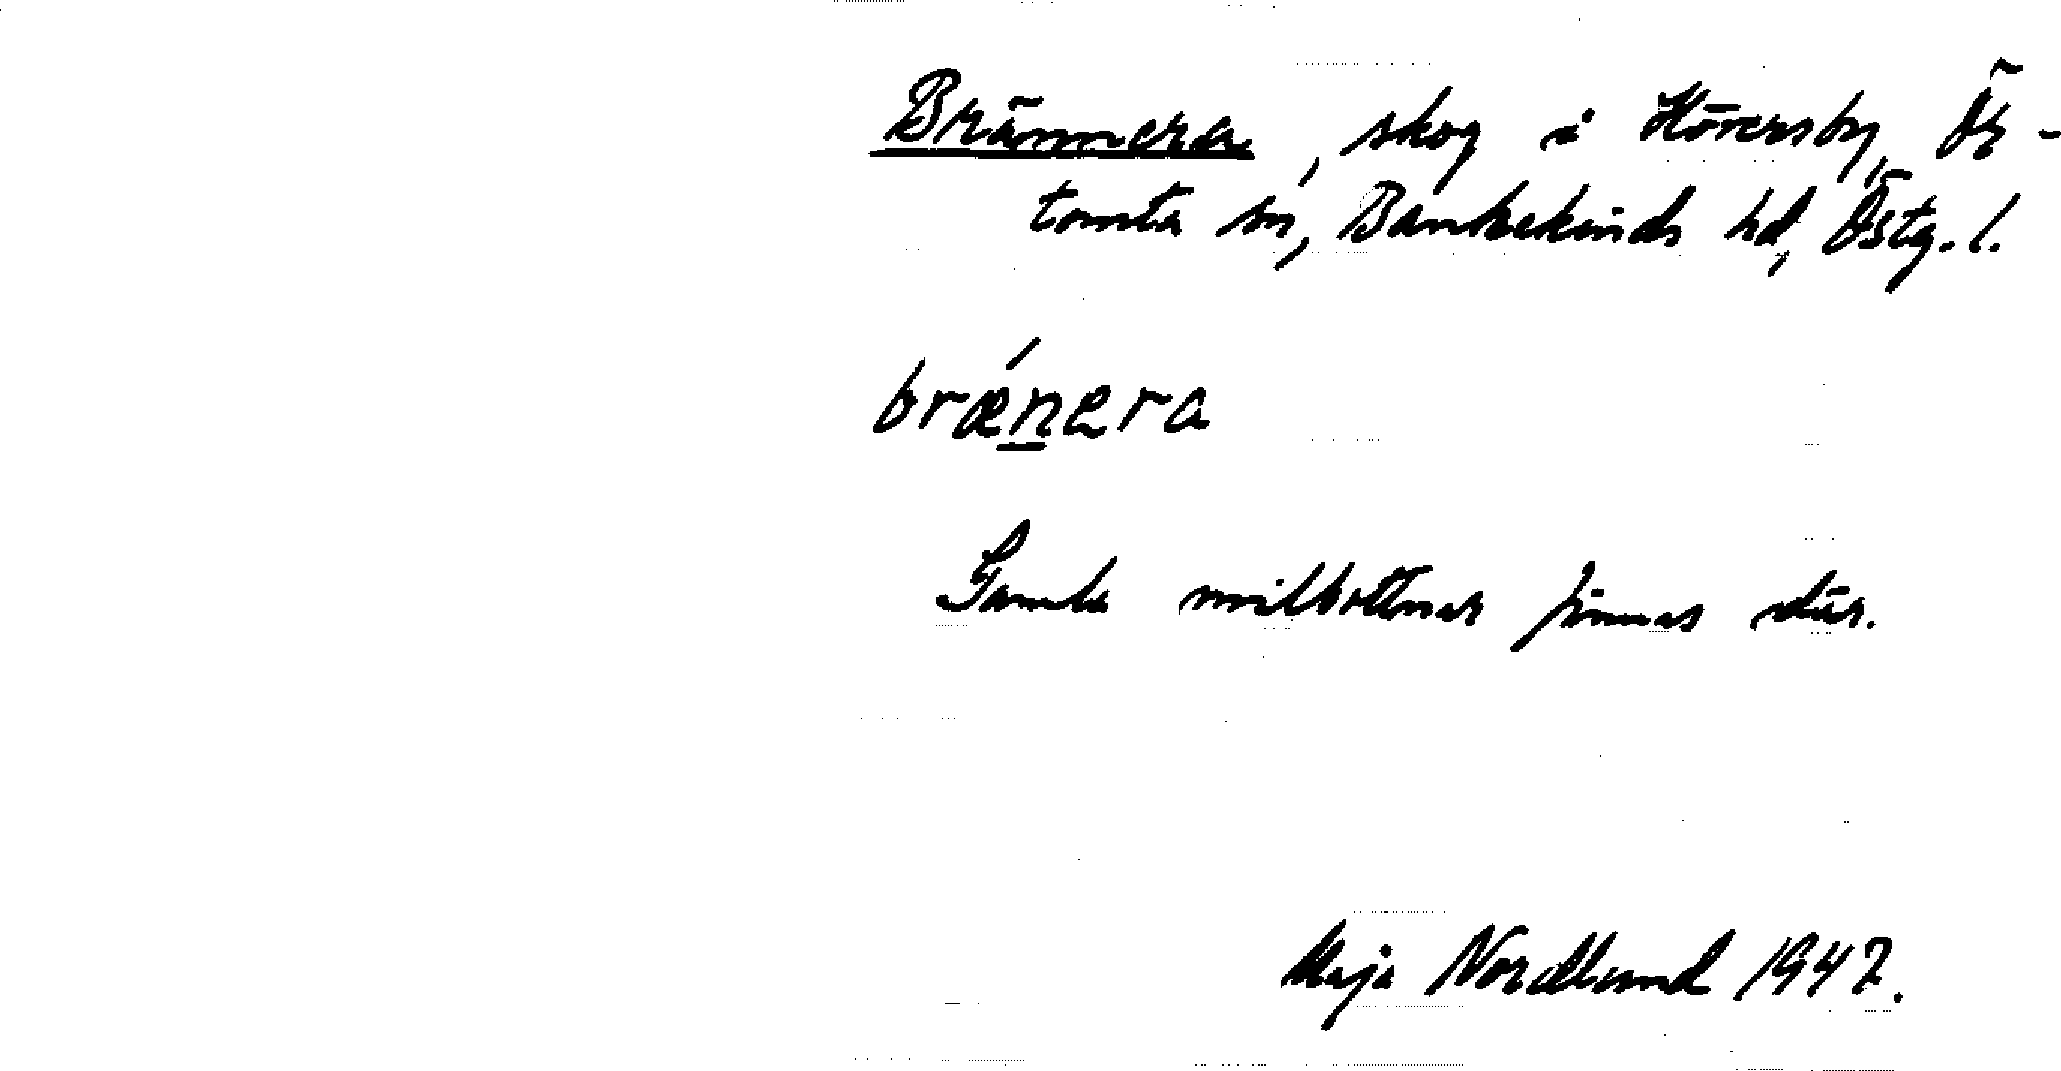 Brännera, skog i Höversby, Ör-
tomta sn, Bankekinds hd, Östg. l.
bræ´nera
Gamla milbottnar finnas där.
Maja Nordlund 1947.